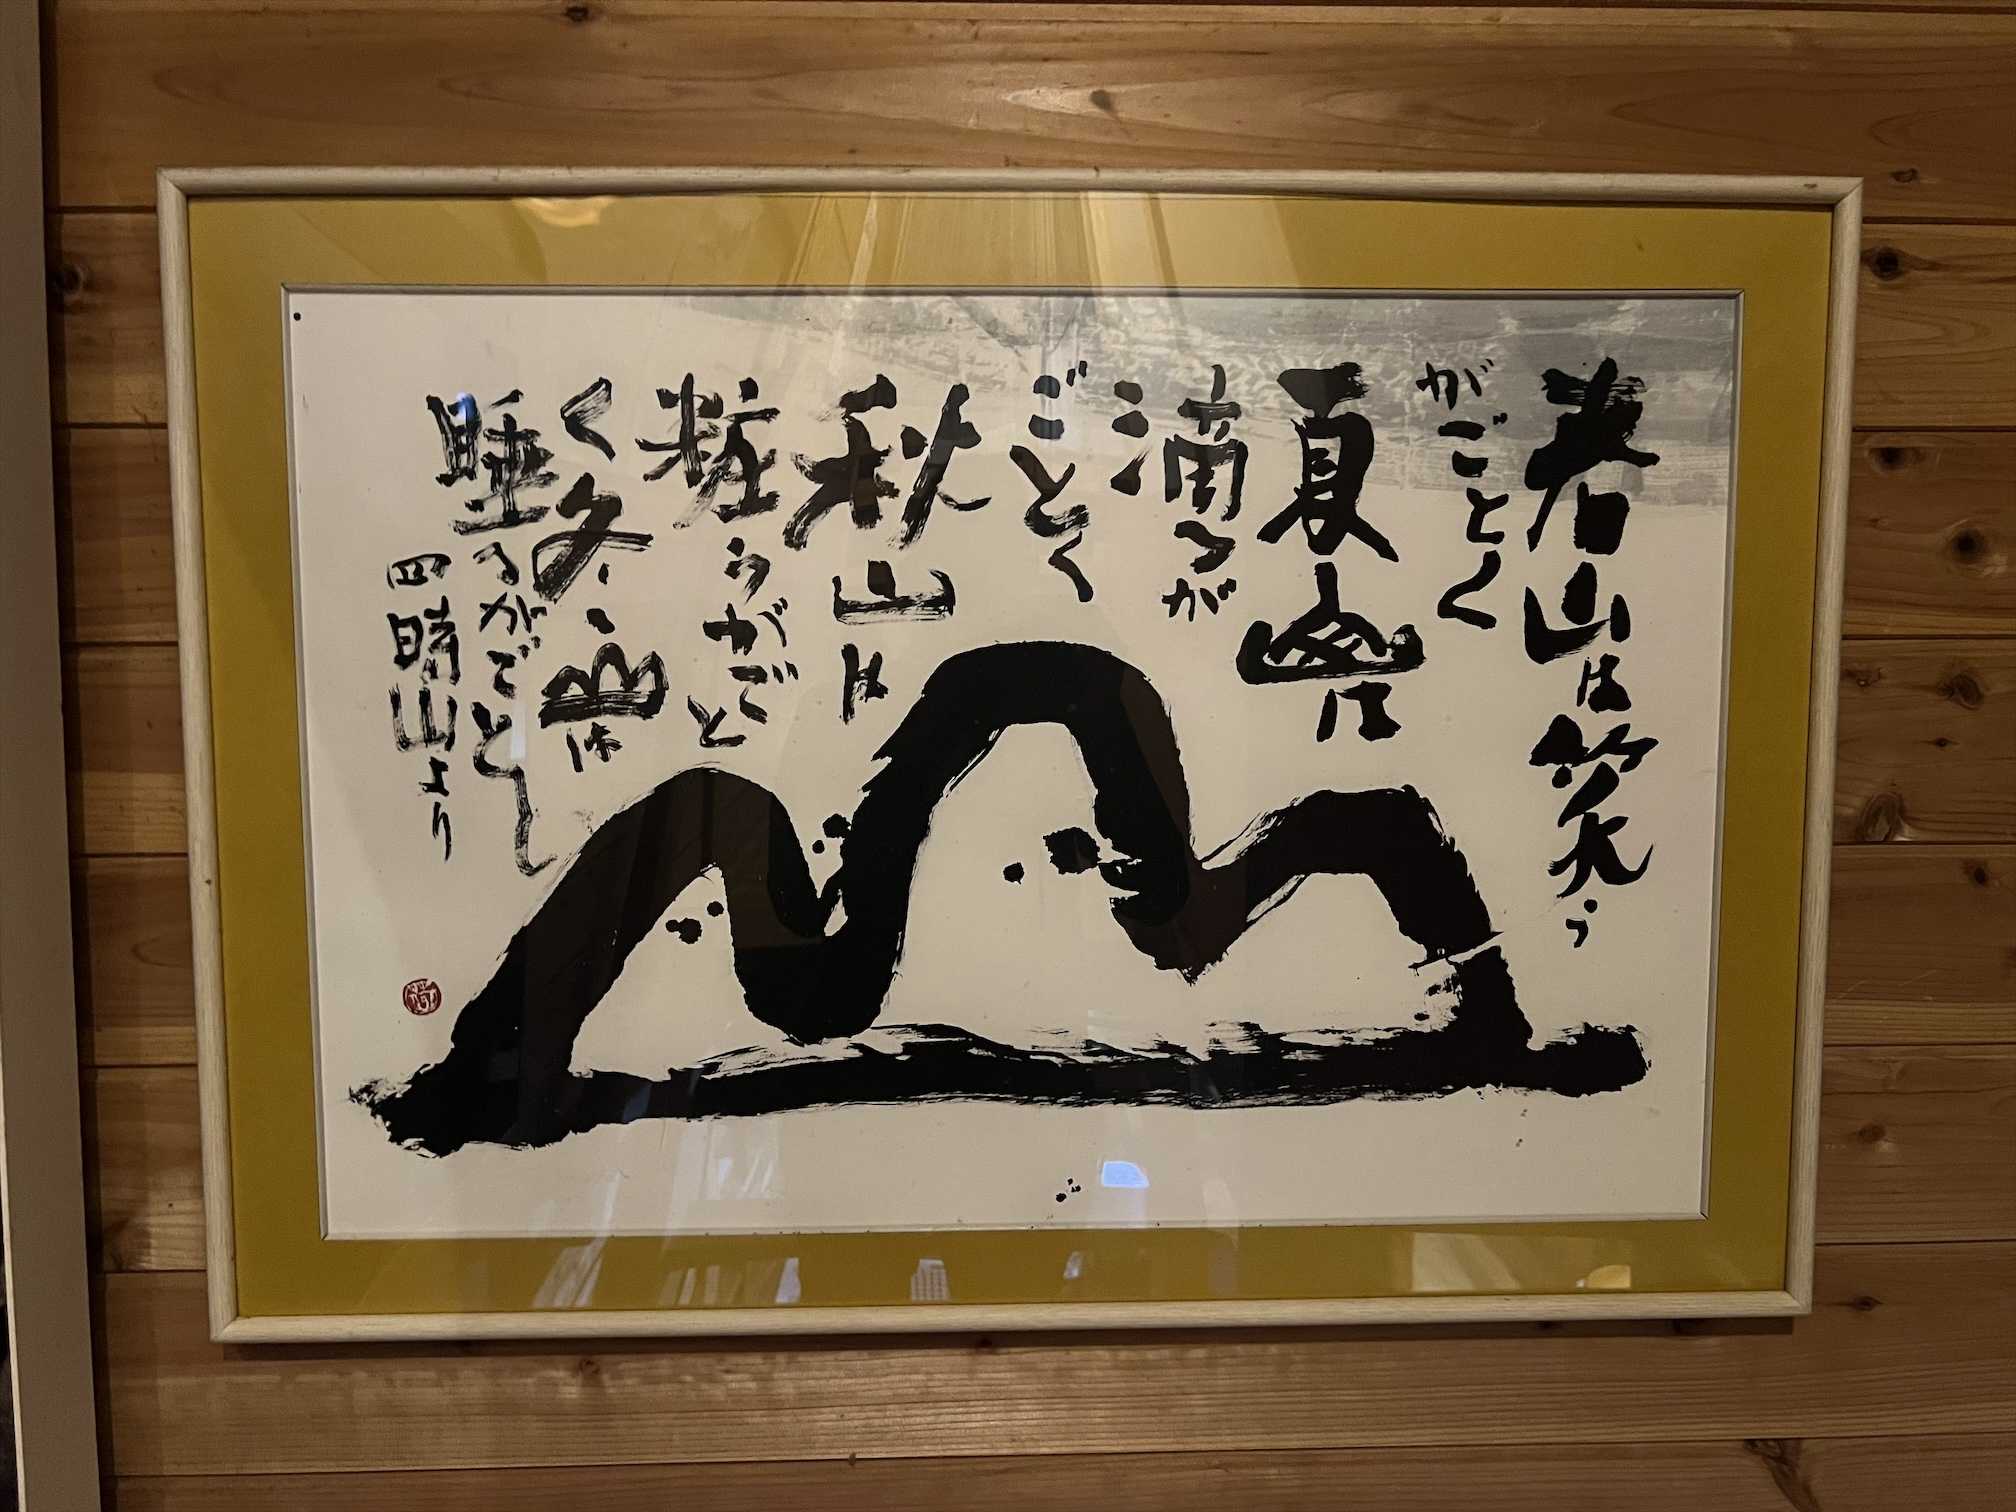 春山は笑う
がごとく
夏山は
滴るが
ごとく
秋山は
粧うがごと
く冬山は
睡るがごとし
四時山より